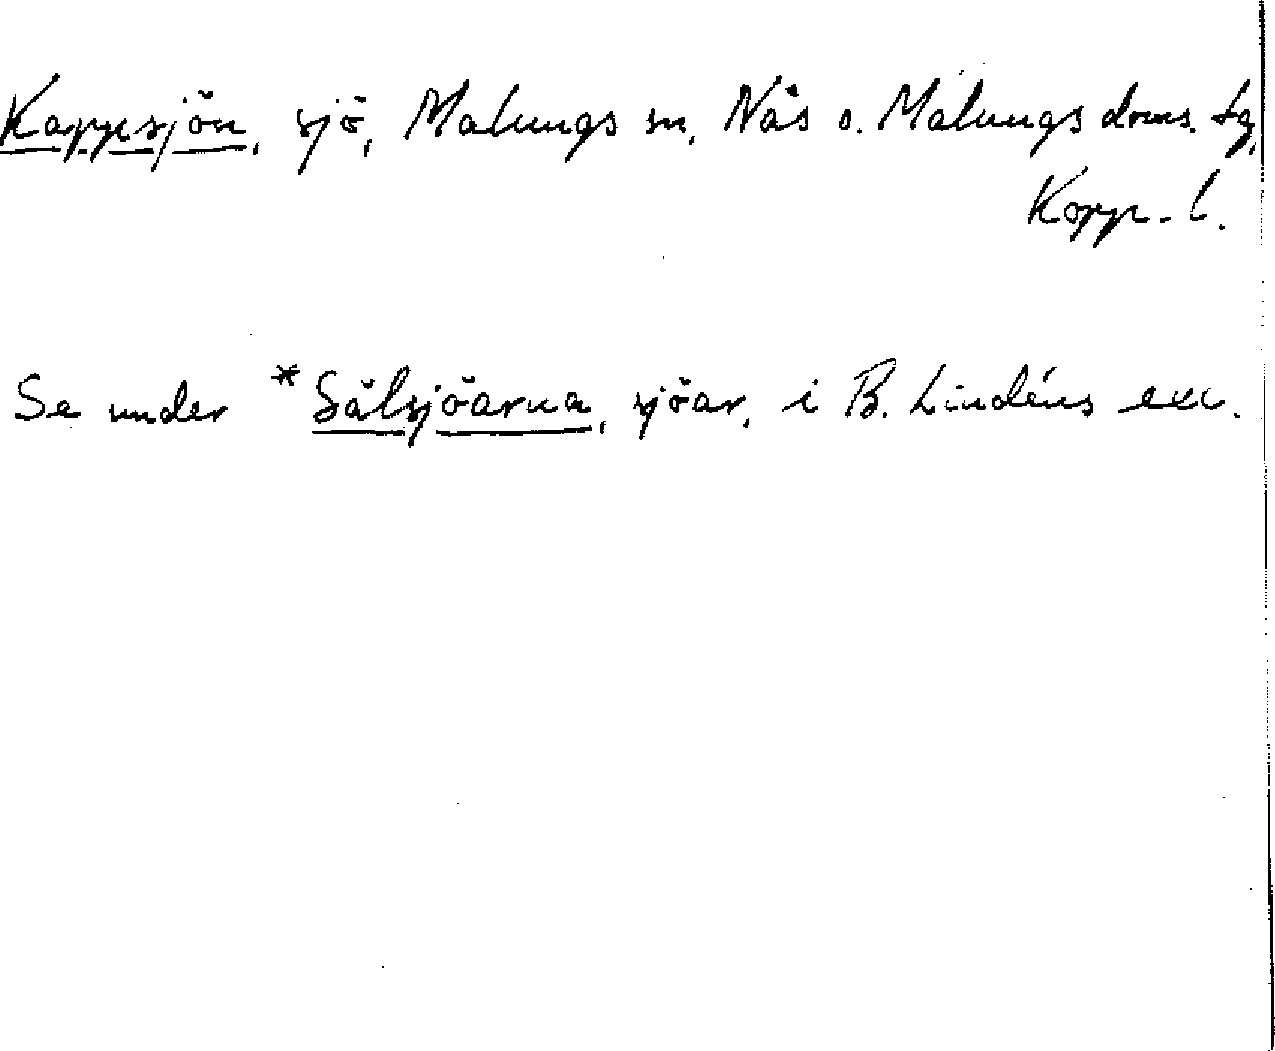 Kappesjön, sjö, Malungs sn, Näs o. Malungs doms. tg,
Kopp. l.
Se under *Sälsjöarna, sjöar, i B. Lindéns exc.